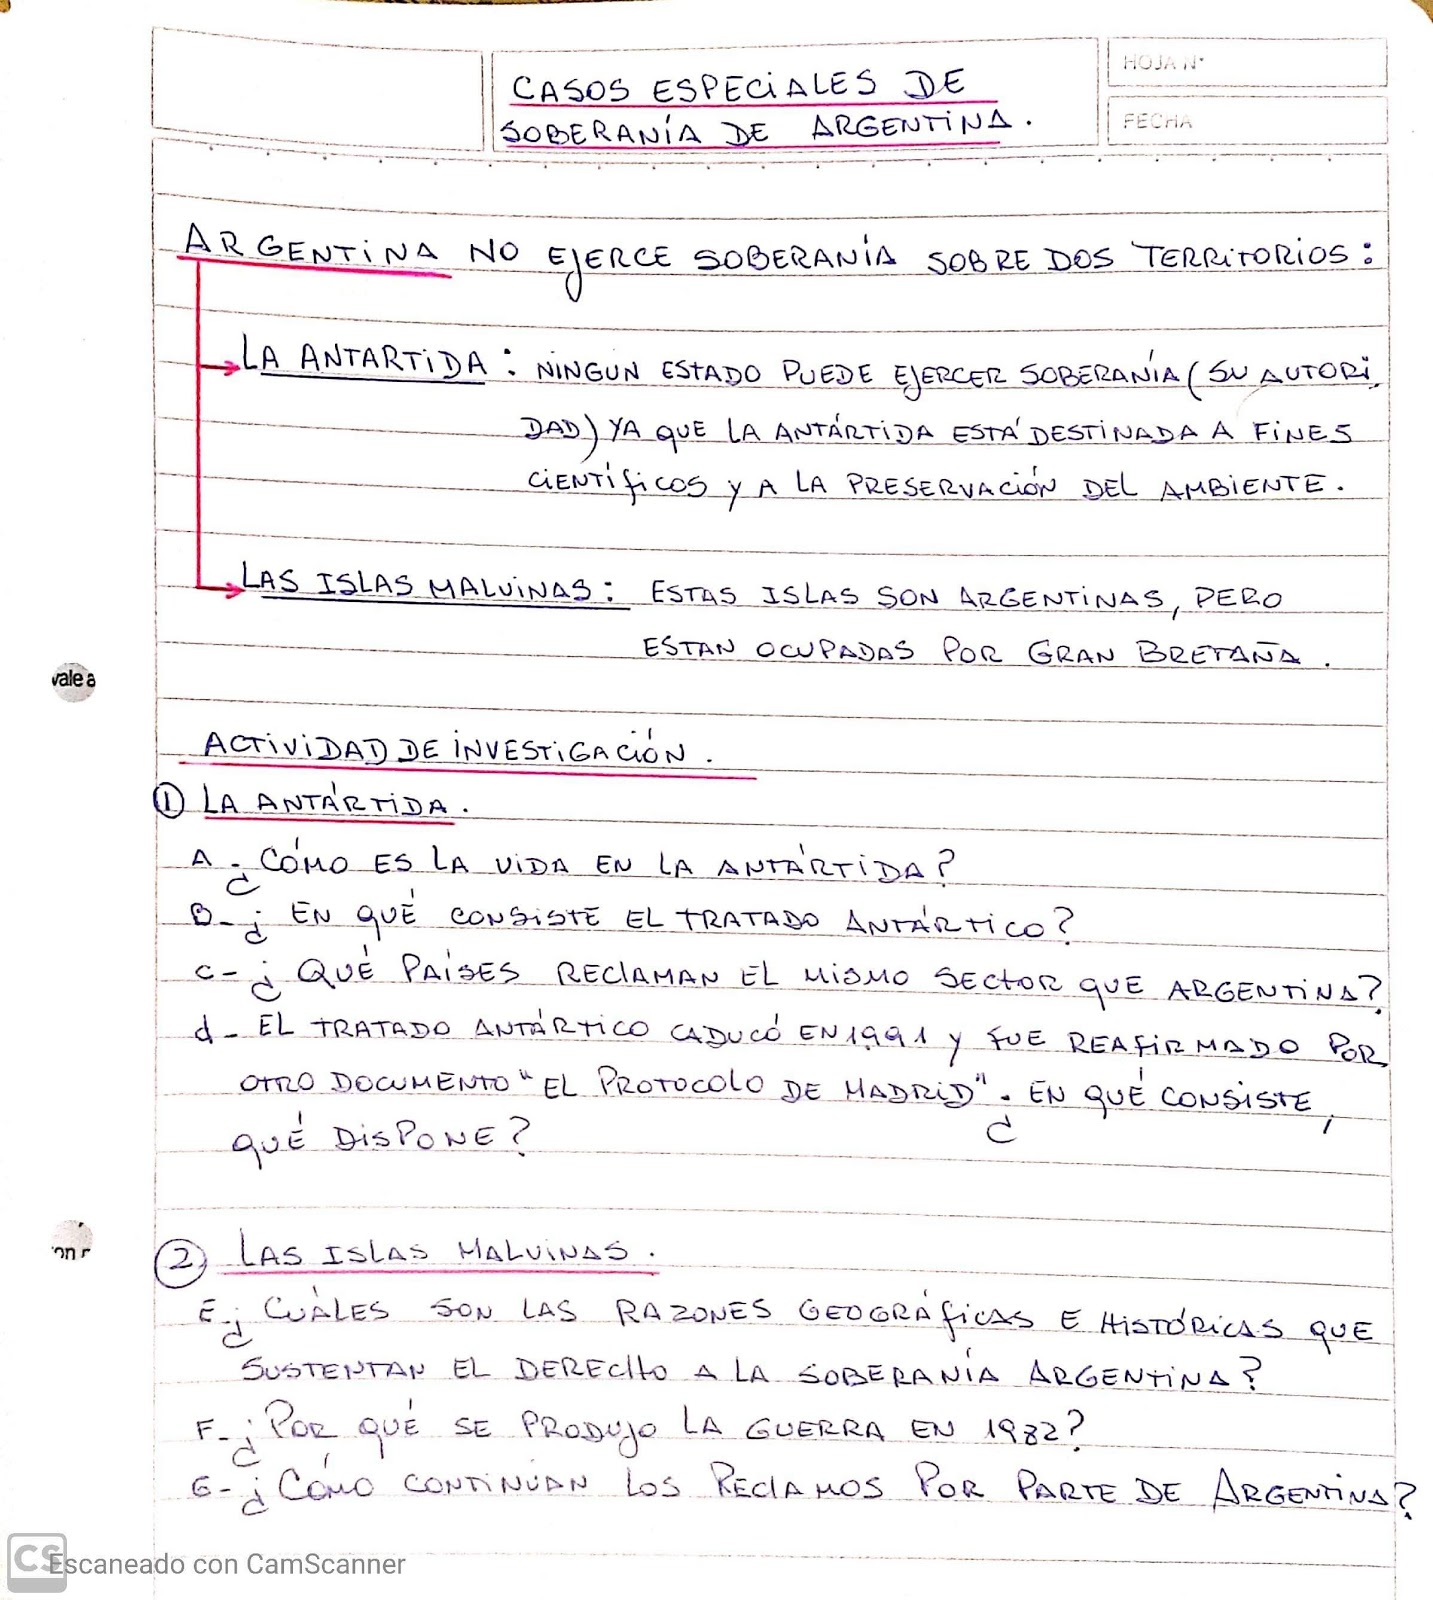 HOJA N°
FECHA
CASOS ESPECIALES DE
SOBERANÍA DE ARGENTINA.
ARGENTINA NO EJERCE SOBERANÍA SOBRE DOS TERRITORIOS:
LA ANTARTIDA: NINGUN ESTADO PUEDE EJERCER SOBERANÍA (SU AUTORI
DAD) YA QUE LA ANTÁRTIDA ESTÁ DESTINADA A FINES
CIENTÍFICOS Y A LA PRESERVACIÓN DEL AMBIENTE.
LAS ISLAS MALVINAS: ESTAS ISLAS SON ARGENTINAS, PERO
ESTAN OCUPADAS POR GRAN BRETAÑA.
vale a
ACTIVIDAD DE INVESTIGACIÓN.
① LA ANTÁRTIDA.
A ¿CÓMO ES LA VIDA EN LA ANTÁRTIDA?
B-¿ EN QUÉ CONSISTE EL TRATADO ANTÁRTICO?
C-¿ QUÉ PAÍSES RECLAMAN EL MISMO SECTOR QUE ARGENTINA?
d- EL TRATADO ANTÁRTICO CADUCÓ EN 1991 Y FUE REAFIRMADO POR
OTRO DOCUMENTO "EL PROTOCOLO DE MADRID" ¿ EN QUÉ CONSISTE,
QUÉ DISPONE?
② LAS ISLAS MALVINAS.
E-¿ CUÁLES SON LAS RAZONES GEOGRÁFICAS E HISTÓRICAS QUE
SUSTENTAN EL DERECHO A LA SOBERANÍA ARGENTINA?
F-¿POR QUÉ SE PRODUJO LA GUERRA EN 1982?
G-¿CÓMO CONTINUAN LOS RECLAMOS POR PARTE DE ARGENTINA?
CS Escaneado con CamScanner